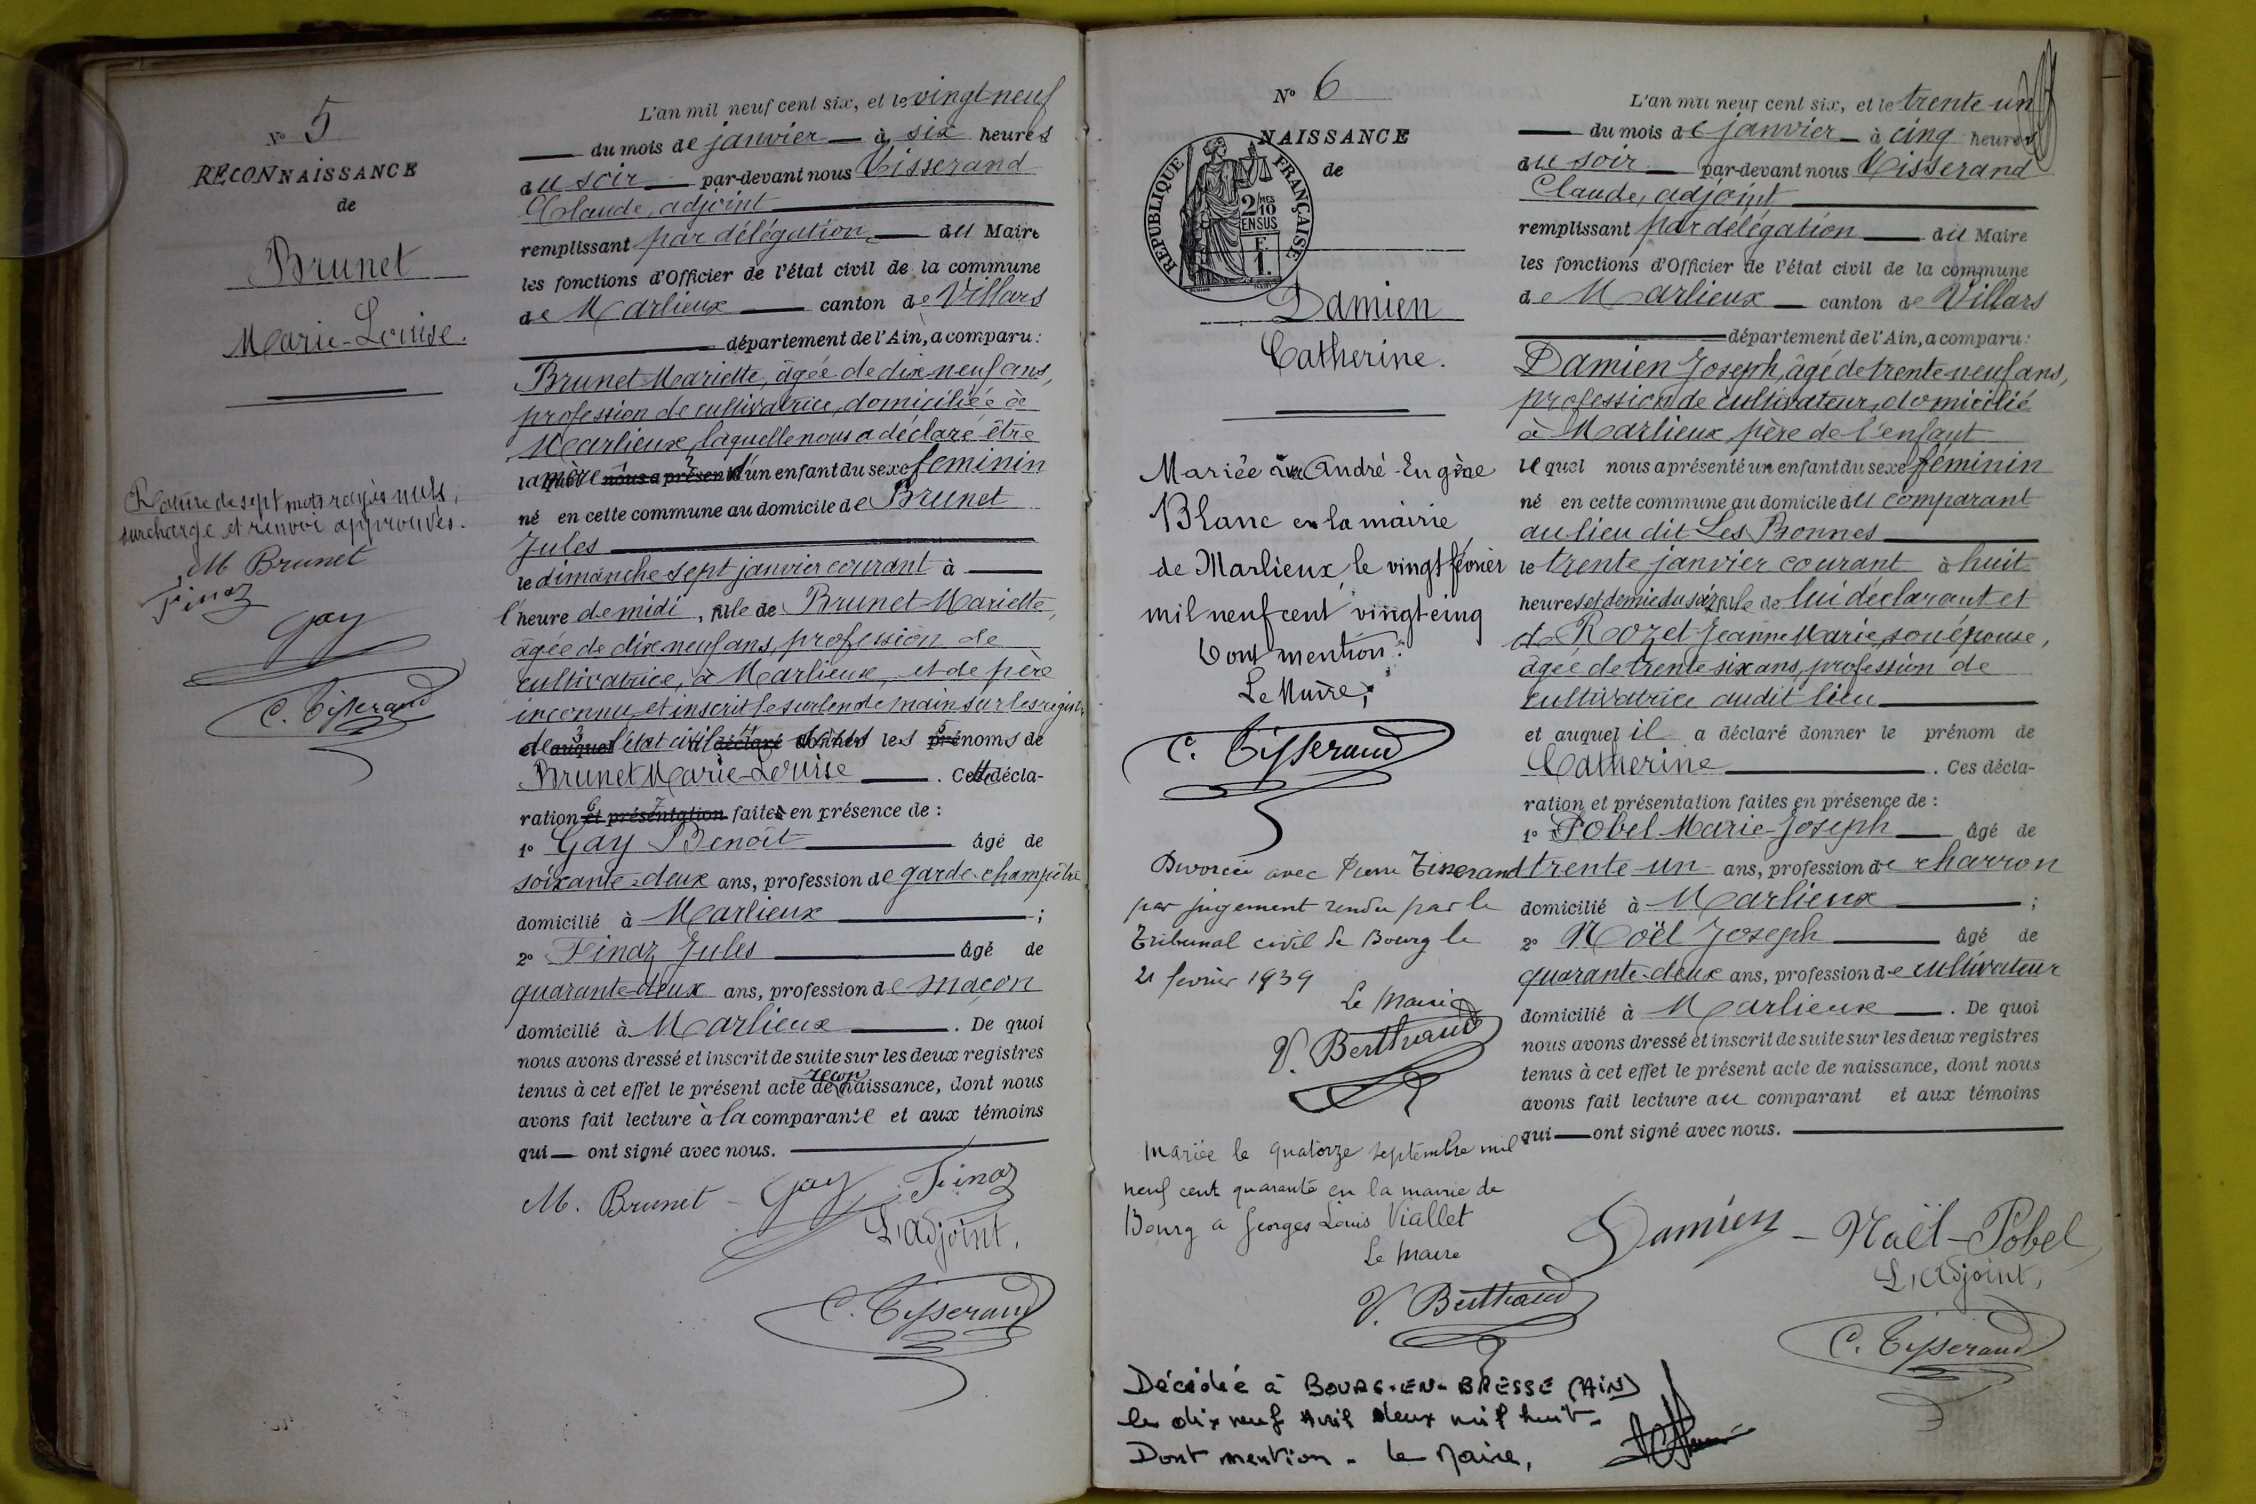 N° 5
RECONNAISSANCE
de
Brunet
Marie-Louise.
Rature de sept mots rayés nuls,
surcharge et renvoi approuvés.
M Brunet
Finaz
Gay
C. Tisserand
L'an mil neuf cent six, et le vingt neuf
du mois de janvier à six heures
du soir par-devant nous Tisserand
Claude, adjoint
remplissant par délégation du Maire
les fonctions d'Officier de l'état civil de la commune
de Marlieux canton de Villars
département de l'Ain, a comparu :
Brunet Mariette, âgée de dix neuf ans,
profession de cultivatrice, domiciliée à
Marlieux, laquelle nous a déclaré être
la mère nous a présenté d'un enfant du sexe féminin
né en cette commune au domicile de Brunet
Jules
le dimanche sept janvier courant à
l'heure de midi, fille de Brunet Mariette,
âgée de dix neuf ans, profession de
cultivatrice, à Marlieux, et de père
inconnu, et inscrit le surlendemain sur les registres
de auquel l'état civil déclaré donner les prénoms de
Brunet Marie-Louise. Cette décla-
ration et présentation faites en présence de :
1° Gay Benoît âgé de
soixante-deux ans, profession de garde-champêtre
domicilié à Marlieux ;
2° Finaz Jules âgé de
quarante-deux ans, profession de maçon
domicilié à Marlieux. De quoi
nous avons dressé et inscrit de suite sur les deux registres
recon
tenus à cet effet le présent acte de naissance, dont nous
avons fait lecture à la comparante et aux témoins
qui ont signé avec nous.
M. Brunet - Gay Finaz
L'Adjoint,
C. Tisserand
N° 6
NAISSANCE
de
RÉPUBLIQUE FRANÇAISE
2 MES
10
EN SUS
F.
1.
Damien
Catherine.
Mariée à André-Eugène
Blanc en la mairie
de Marlieux, le vingt février
mil neuf cent vingt-cinq
Dont mention :
Le Maire,
C. Tisserand
Divorcée avec Pierre Tisserand
par jugement rendu par le
Tribunal civil de Bourg le
21 février 1939
Le Maire
V. Berthaud
Mariée le quatorze septembre mil
neuf cent quarante en la mairie de
Bourg à Georges Louis Viallet
Le Maire
V. Berthaud
Décédée à BOURG-EN-BRESSE (AIN)
le dix neuf Avril deux mil huit-
Dont mention - le Maire,
L'an mil neuf cent six, et le trente un
du mois de janvier à cinq heures
du soir par-devant nous Tisserand
Claude, adjoint
remplissant par délégation du Maire
les fonctions d'Officier de l'état civil de la commune
de Marlieux canton de Villars
département de l'Ain, a comparu :
Damien Joseph, âgé de trente neuf ans,
profession de cultivateur, domicilié
à Marlieux, père de l'enfant
lequel nous a présenté un enfant du sexe féminin
né en cette commune au domicile du comparant
au lieu dit Les Bonnes
le trente janvier courant à huit
heures et demie du soir, fille de lui déclarant et
de Rozet Jeanne Marie, son épouse,
âgée de trente six ans, profession de
cultivatrice audit lieu
et auquel il a déclaré donner le prénom de
Catherine. Ces décla-
ration et présentation faites en présence de :
1° Pobel Marie-Joseph âgé de
trente-un ans, profession de charron
domicilié à Marlieux ;
2° Noël Joseph âgé de
quarante-deux ans, profession de cultivateur
domicilié à Marlieux. De quoi
nous avons dressé et inscrit de suite sur les deux registres
tenus à cet effet le présent acte de naissance, dont nous
avons fait lecture au comparant et aux témoins
qui ont signé avec nous.
Damien - Noël - Pobel
L'Adjoint,
C. Tisserand